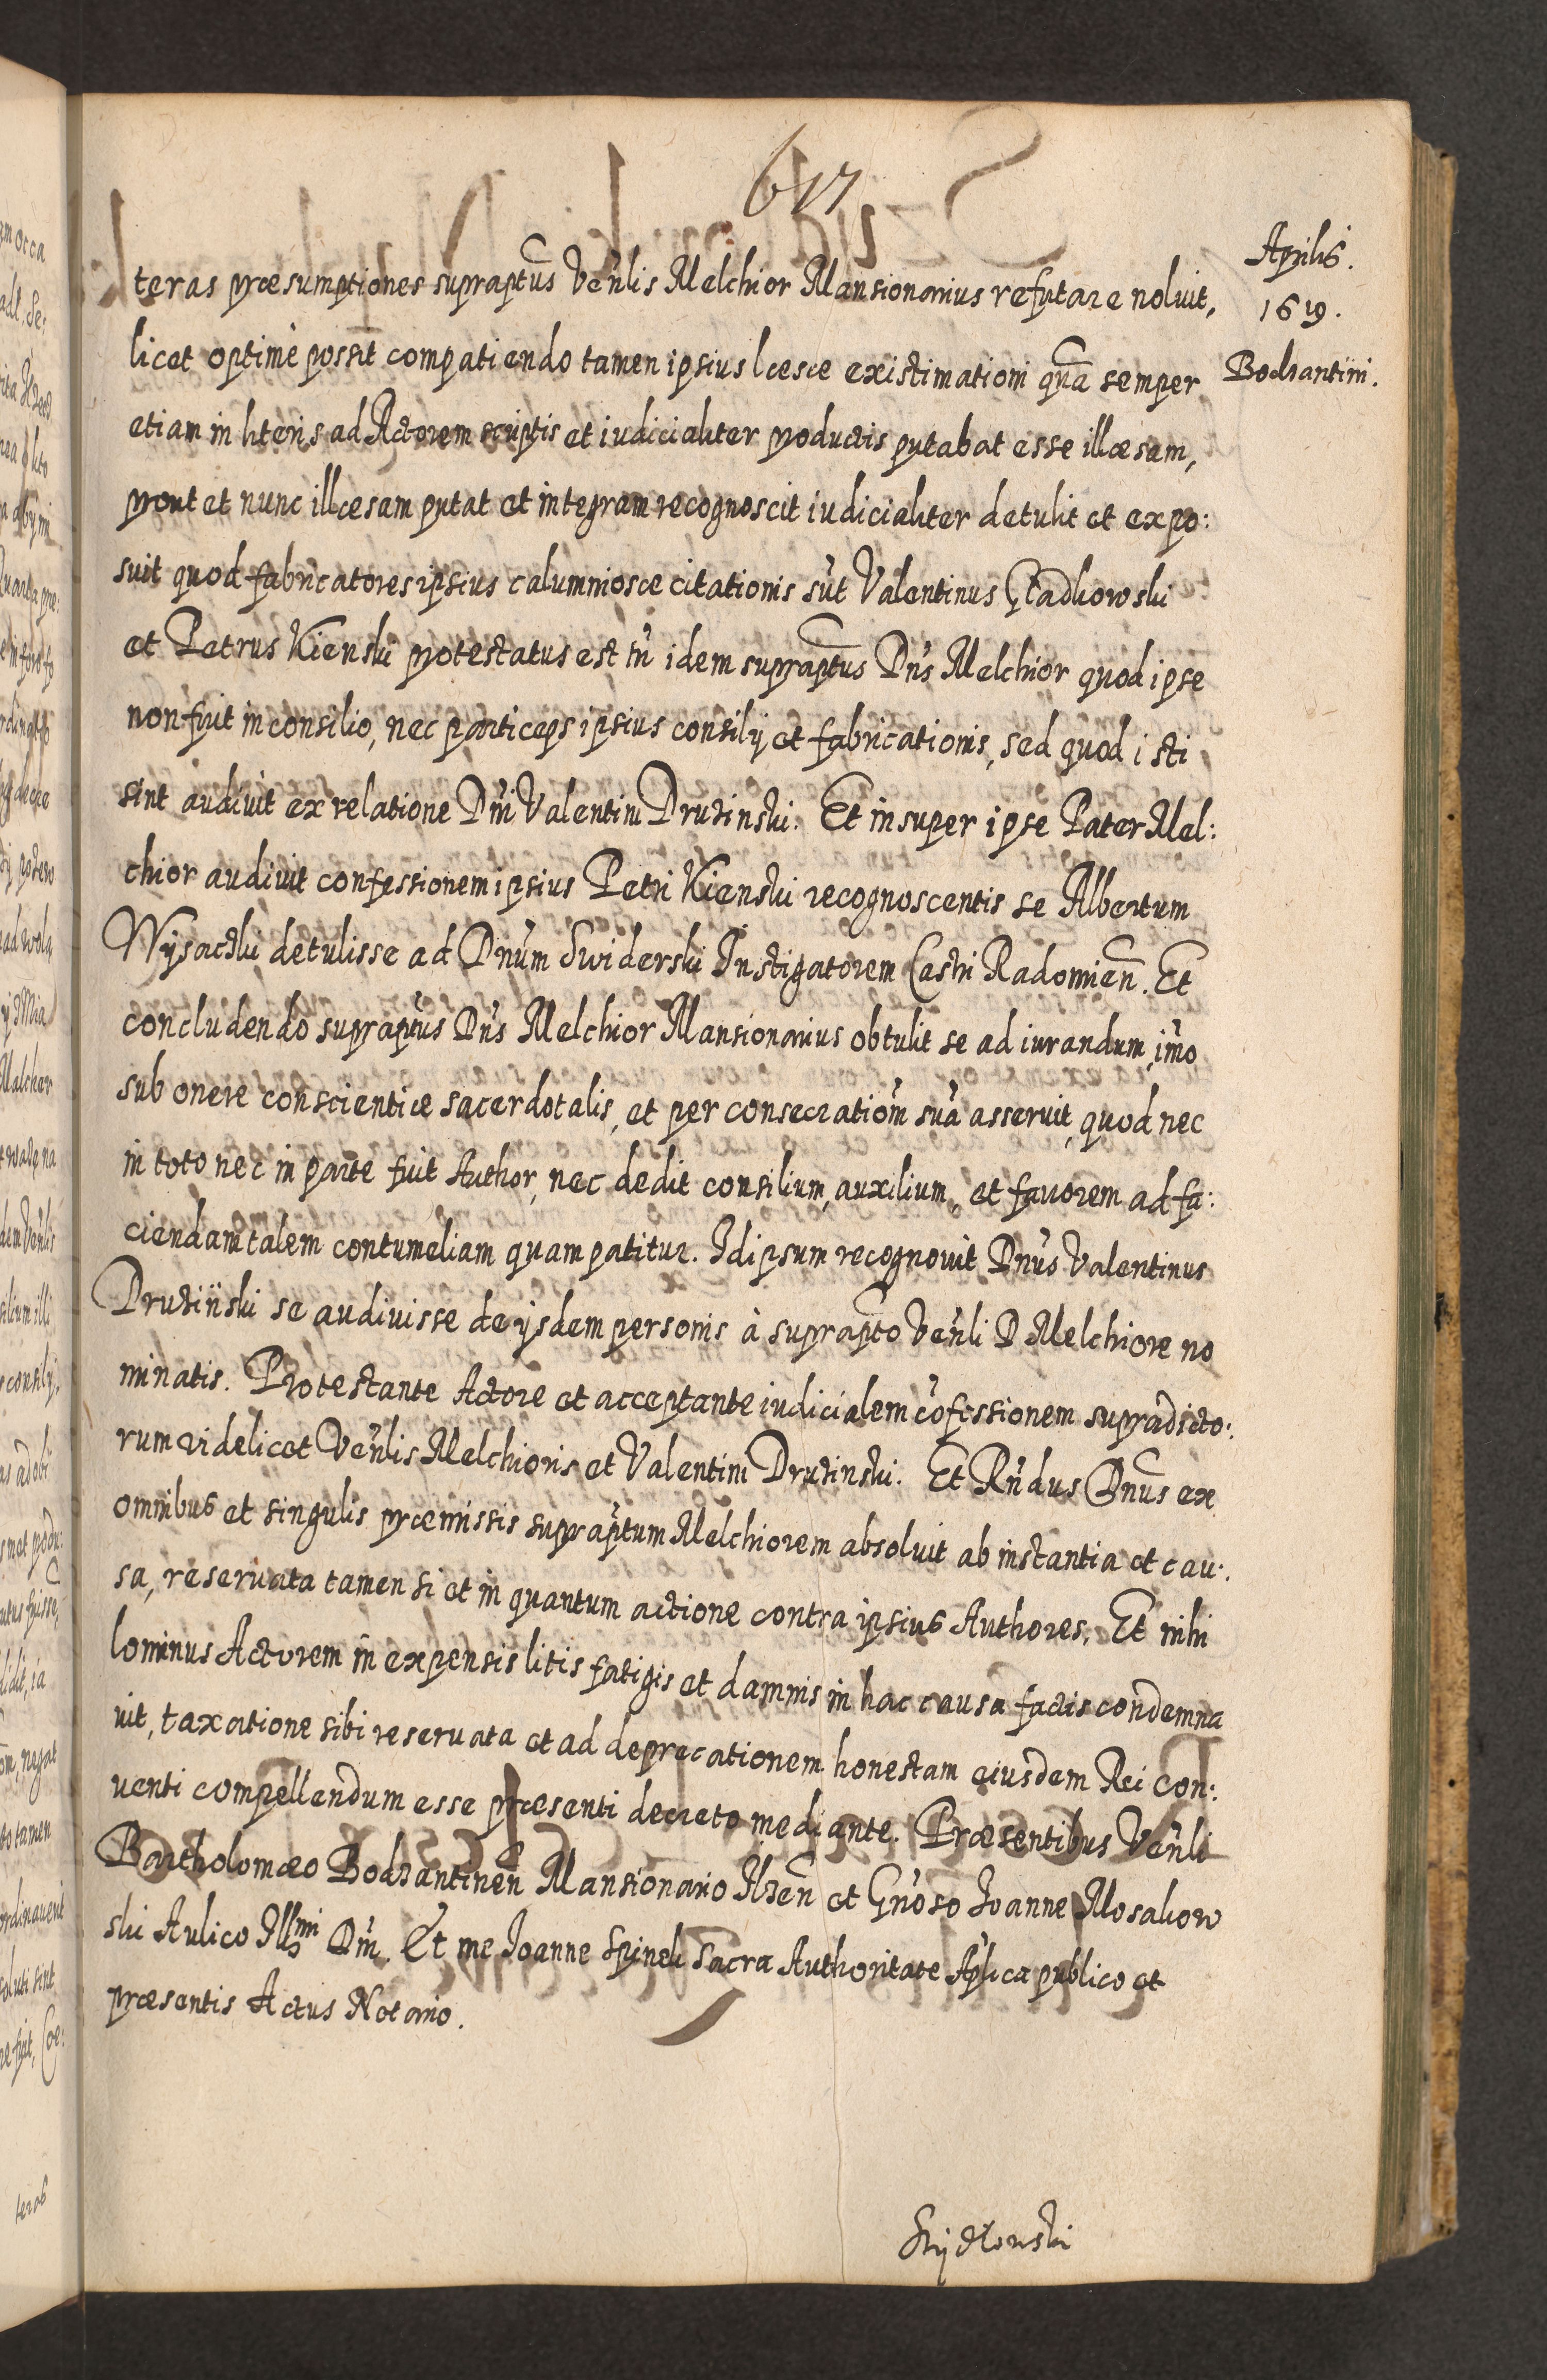 617
Aprilis.
1619.
Bodzantini.
teras præsumptiones supraptus Venlis Melchior Mansionarius refutare noluit,
licet optimè possit compatiendo tamen ipsius læsæ existimationi qua semper
etiam in literis ad Actorem scriptis et iudicialiter productis putabat esse illæsam,
prout et nunc illæsam putat et integram recognoscit iudicialiter detulit et expo:
suit quod fabricatores ipsius calumniosæ citationis sūt Valentinus
et Petrus Kienski protestatus est tn idem supraptus Dns Melchior quod ipse
non fuit in consilio, nec particeps ipsius consilij et fabricationis, sed quod isti
sint audiuit ex relatione Dni Valentini Druzinski. Et insuper ipse Pater Mel:
chior audiuit confessionem ipsius Petri Kienski recognoscentis se Albertum
Wysactki detulisse ad Dnum Swiderski Instigatorem Castri Radomien. Et
concludendo supraptus Dns Melchior Mansionarius obtulit se ad iurandum, imo
sub onere conscientiæ sacerdotalis, et per consecratiom suā asseruit, quod nec
in toto nec in parte fuit Author, nec dedit consilium, auxilium, et fauorem ad fa:
ciendam talem contumeliam quam patitur. Idipsum recognouit Dnus Valentinus
Druziński se audiuisse de ijsdem personis à suprapto Venli D Melchiore no
minatis. Protestante Actore et acceptante iudicialem cōfessionem supradicto:
rum videlicet Venlis Melchioris et Valentini Druzinski. Et Rndus Dnus ex
omnibus et singulis præmissis supraptum Melchiorem absoluit ab instantia et cau:
sa, reseruata tamen si et in quantum actione contra ipsius Authores. Et nihi
lominus Actorem in expensis litis fatigis et damnis in hac causa factis condemna
uit, taxatione sibi reseruata et ad deprecationem honestam eiusdem Rei con:
uenti compellendum esse præsenti decreto mediante. Præsentibus Venli
Bartholomæo Bodzantinen Mansionario Ilzen et Gnoso Ioanne Mosakow
ski Aulico Illmi Dni. Et me Ioanne Spinek Sacra Authoritate Aplica publico et
præsentis Actus Notario.